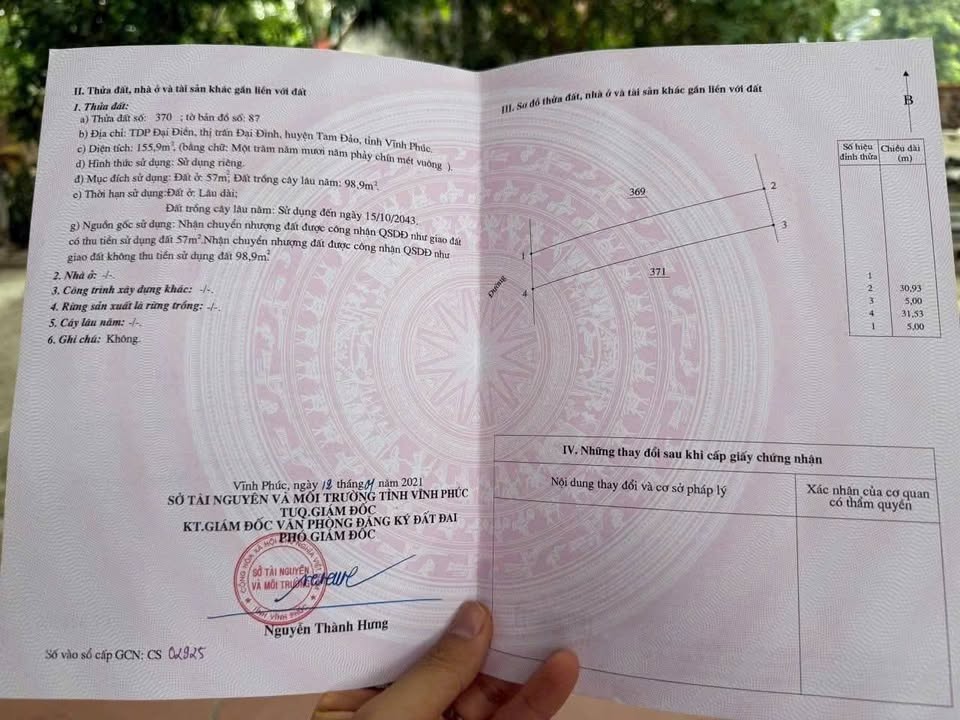 II. Thửa đất, nhà ở và tài sản khác gắn liền với đất
1. Thửa đất:
a) Thửa đất số: 370 ; tờ bản đồ số: 87
b) Địa chỉ: TDP Đại Điền, thị trấn Đại Đình, huyện Tam Đảo, tỉnh Vĩnh Phúc.
c) Diện tích: 155,9m², (bằng chữ: Một trăm năm mươi năm phảy chín mét vuông ).
d) Hình thức sử dụng: Sử dụng riêng.
đ) Mục đích sử dụng: Đất ở: 57m²; Đất trồng cây lâu năm: 98,9m².
e) Thời hạn sử dụng:Đất ở: Lâu dài;
Đất trồng cây lâu năm: Sử dụng đến ngày 15/10/2043.
g) Nguồn gốc sử dụng: Nhận chuyển nhượng đất được công nhận QSDĐ như giao đất
có thu tiền sử dụng đất 57m².Nhận chuyển nhượng đất được công nhận QSDĐ như
giao đất không thu tiền sử dụng đất 98,9m².
2. Nhà ở: -/-.
3. Công trình xây dựng khác: -/-.
4. Rừng sản xuất là rừng trồng: -/-.
5. Cây lâu năm: -/-.
6. Ghi chú: Không.
Vĩnh Phúc, ngày 12 tháng 01 năm 2021
SỞ TÀI NGUYÊN VÀ MÔI TRƯỜNG TỈNH VĨNH PHÚC
TUQ.GIÁM ĐỐC
KT.GIÁM ĐỐC VĂN PHÒNG ĐĂNG KÝ ĐẤT ĐAI
PHÓ GIÁM ĐỐC
SỞ TÀI NGUYÊN
VÀ MÔI TRƯỜNG
TỈNH VĨNH PHÚC
Nguyễn Thành Hưng
Số vào sổ cấp GCN: CS 02925
III. Sơ đồ thửa đất, nhà ở và tài sản khác gắn liền với đất
B
369
2
3
1
371
4
Đường
Số hiệu đỉnh thửa Chiều dài (m)
1
2 30,93
3 5,00
4 31,53
1 5,00
IV. Những thay đổi sau khi cấp giấy chứng nhận
Nội dung thay đổi và cơ sở pháp lý
Xác nhận của cơ quan
có thẩm quyền